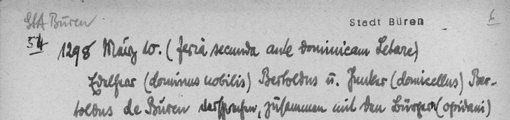 StA Büren
Stadt Büren
6
54
1298 März 10. (feria secunda ante dominicam Letare)
Edelherr (dominus nobilis) Bertoldus u. Junker (domicellus) Ber-
toldus de Büren versprechen, zusammen mit den Bürgern (opidani)